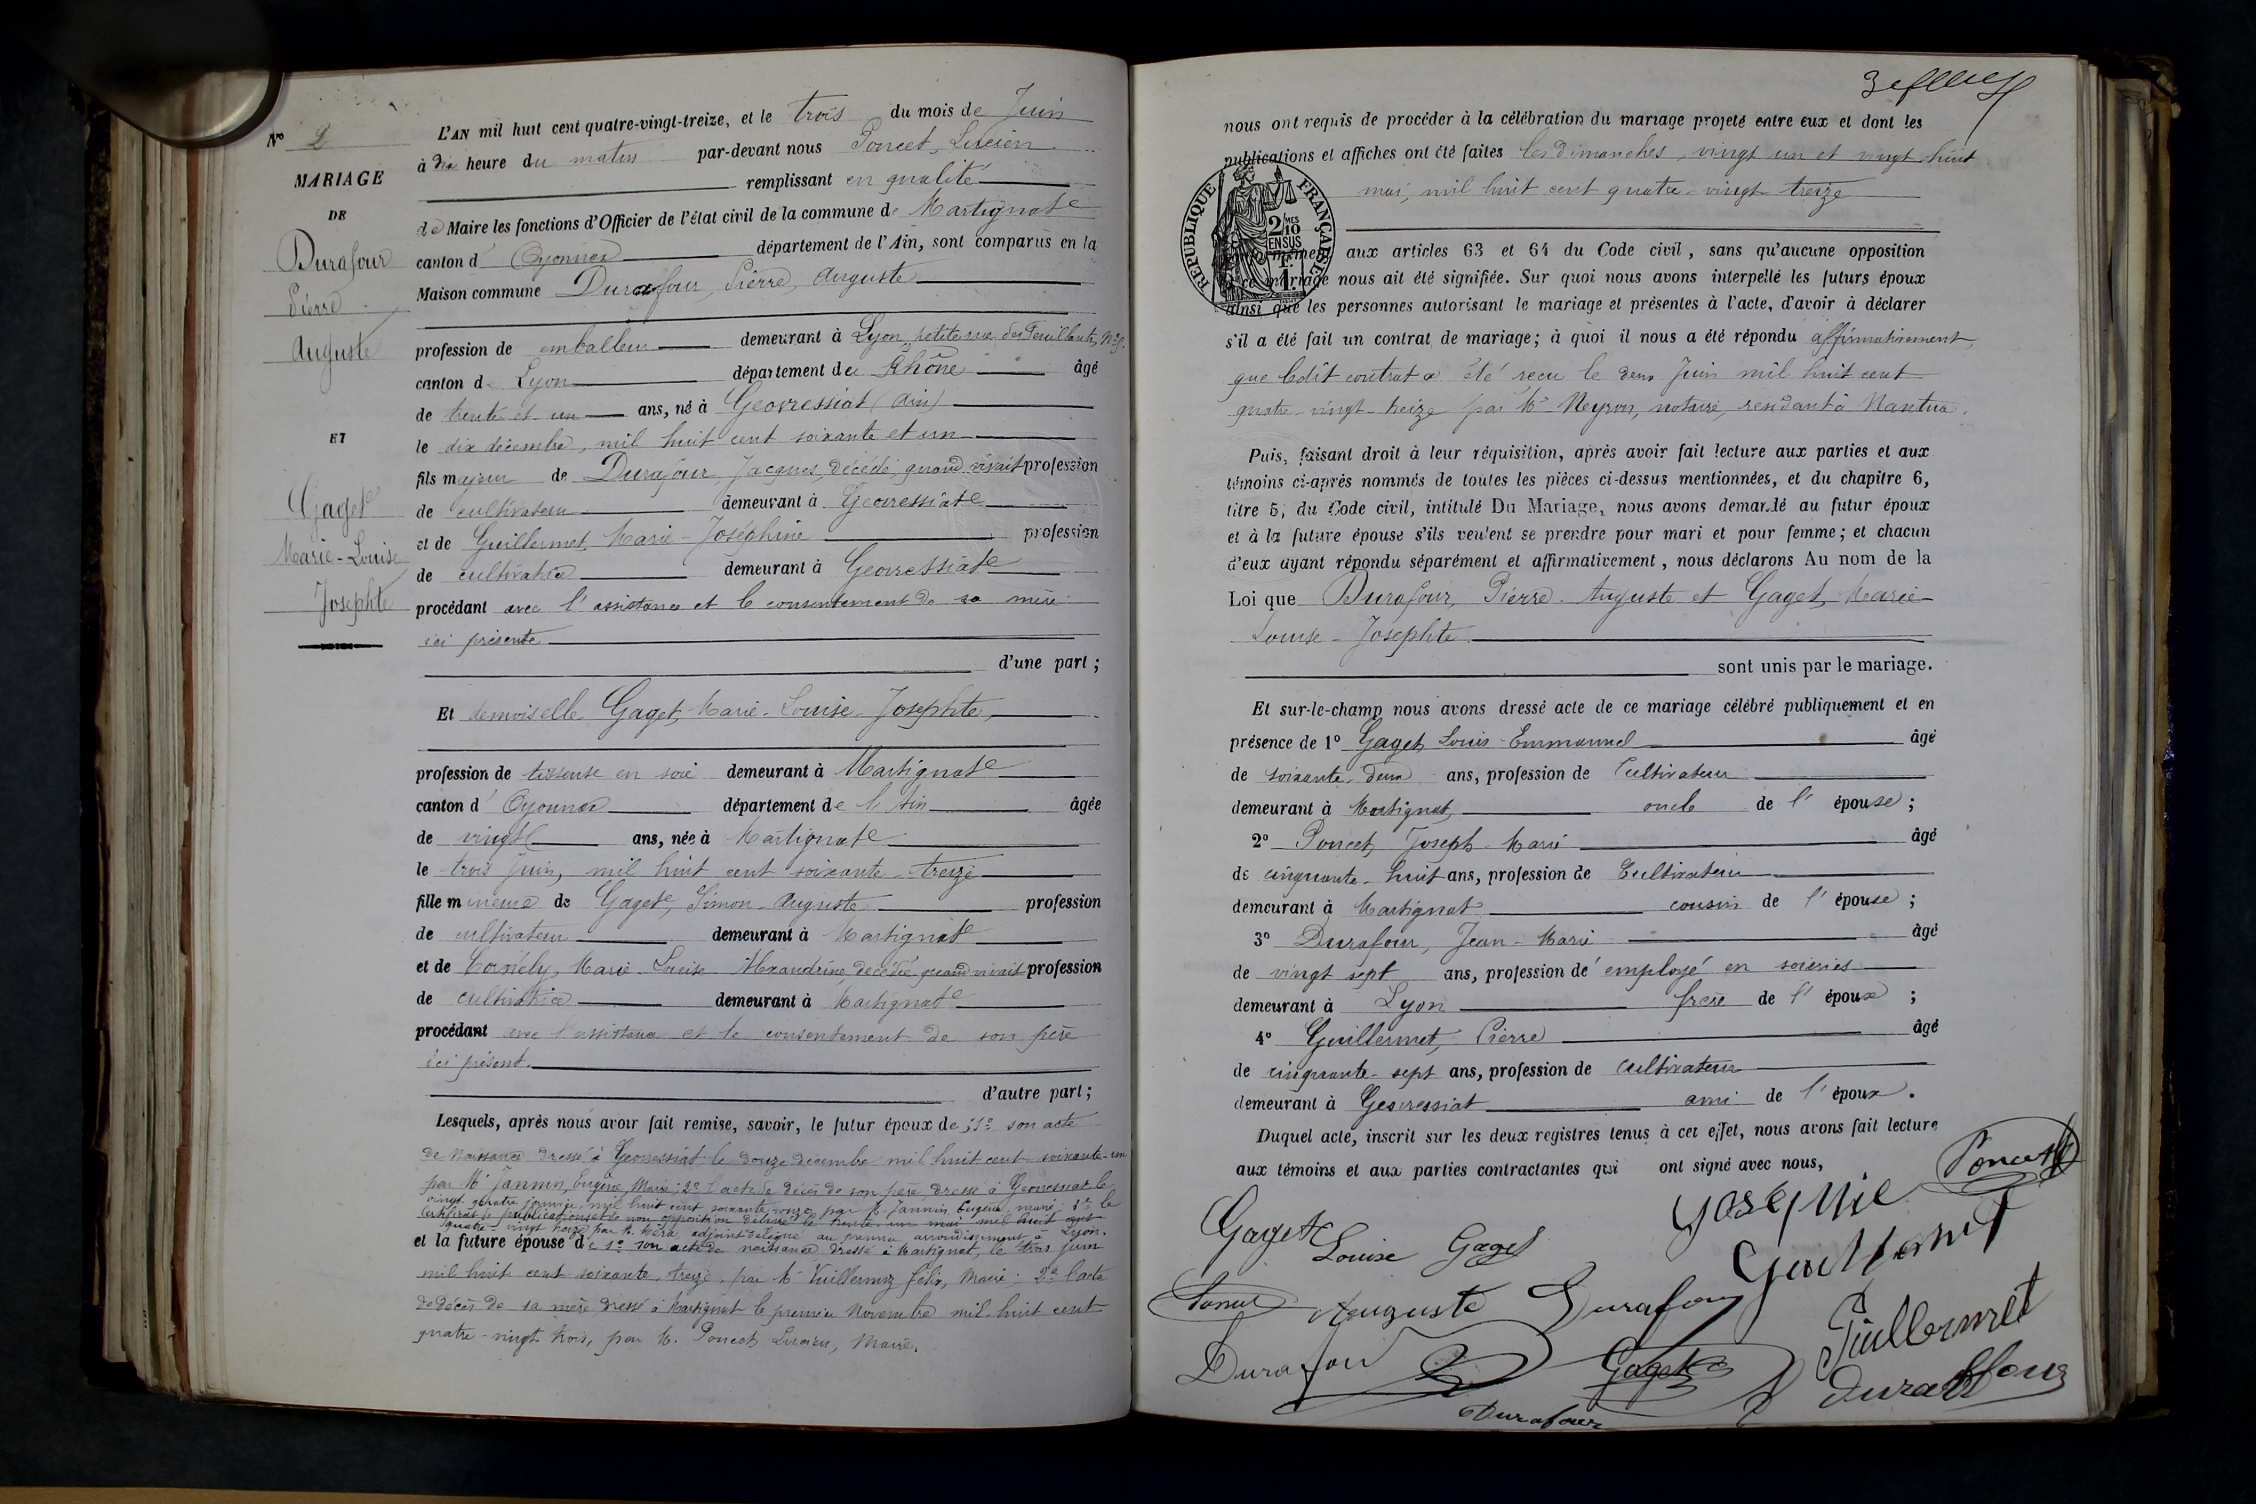 Nº 2
MARIAGE
DE
Durafour
Pierre
Auguste
ET
Gaget
Marie-Louise
Josephte
L'AN mil huit cent quatre-vingt-treize, et le trois du mois de Juin
à dix heure du matin par-devant nous Poncet, Lucien
remplissant en qualité
de Maire les fonctions d'Officier de l'état civil de la commune de Martignat
canton d'Oyonnax département de l'Ain, sont comparus en la
Maison commune Durafour, Pierre, Auguste
profession de emballeur demeurant à Lyon, petite rue des Feuillants, Nº 9.
canton de Lyon département du Rhône âgé
de trente et un ans, né à Geovressiat (Ain)
le dix décembre, mil huit cent soixante et un
fils majeur de Durafour Jacques, décédé, quand vivait profession
de cultivateur demeurant à Geovressiat
et de Guillermet, Marie-Joséphine profession
de cultivatrice demeurant à Geovressiat
procédant avec l'assistance et le consentement de sa mère
ici présente
d'une part ;
Et demoiselle Gaget, Marie-Louise-Josephte,
profession de tisseuse en soie demeurant à Martignat
canton d'Oyonnax département de l'Ain âgée
de vingt ans, née à Martignat
le trois Juin, mil huit cent soixante-treize
fille mineure de Gaget, Simon-Auguste profession
de cultivateur demeurant à Martignat
et de Marie-Louise Alexandrine, décédée, quand vivait profession
de cultivatrice demeurant à Martignat
procédant avec l'assistance et le consentement de son père
ici présent.
d'autre part ;
Lesquels, après nous avoir fait remise, savoir, le futur époux de : 1º son acte
de naissance dressé à Geovressiat le douze décembre mil huit cent soixante-un
par Mr Jannin, Eugène, Maire ; 2º l'acte de décès de son père, dressé à Geovressiat le
vingt quatre janvier, mil huit cent soixante onze par M. Jannin Eugène, maire ; 3º le
certificat de publications et de non opposition délivré le trente-un mai mil huit cent
quatre-vingt treize par M. adjoint délégué au premier arrondissement à Lyon.
et la future épouse de 1º son acte de naissance dressé à Martignat, le trois juin
mil huit cent soixante treize, par Mr Vuillermoz Félix, Maire : 2º l'acte
de décès de sa mère dressé à Martignat le premier Novembre mil huit cent
quatre-vingt trois, par M. Poncet Lucien, Maire.
nous ont requis de procéder à la célébration du mariage projeté entre eux et dont les
publications et affiches ont été faites les dimanches, vingt un et vingt huit
mai, mil huit cent quatre-vingt treize
RÉPUBLIQUE FRANÇAISE
2/10 MES
EN SUS
1 F.
conformément aux articles 63 et 64 du Code civil, sans qu'aucune opposition
à ce mariage nous ait été signifiée. Sur quoi nous avons interpellé les futurs époux
ainsi que les personnes autorisant le mariage et présentes à l'acte, d'avoir à déclarer
s'il a été fait un contrat de mariage ; à quoi il nous a été répondu affirmativement,
que ledit contrat a été reçu le deux Juin mil huit cent
quatre-vingt-treize par Me Neyron, notaire, résidant à Nantua.
Puis, faisant droit à leur réquisition, après avoir fait lecture aux parties et aux
témoins ci-après nommés de toutes les pièces ci-dessus mentionnées, et du chapitre 6,
titre 5, du Code civil, intitulé Du Mariage, nous avons demandé au futur époux
et à la future épouse s'ils veulent se prendre pour mari et pour femme ; et chacun
d'eux ayant répondu séparément et affirmativement, nous déclarons Au nom de la
Loi que Durafour, Pierre-Auguste et Gaget, Marie-
Louise-Josephte
sont unis par le mariage.
Et sur-le-champ nous avons dressé acte de ce mariage célébré publiquement et en
présence de 1º Gaget Louis-Emmanuel âgé
de soixante-deux ans, profession de Cultivateur
demeurant à Martignat, oncle de l'épouse ;
2º Poncet, Joseph-Marie âgé
de cinquante-huit ans, profession de Cultivateur
demeurant à Martignat cousin de l'épouse ;
3º Durafour, Jean-Marie âgé
de vingt sept ans, profession d'employé en soieries
demeurant à Lyon frère de l'époux ;
4º Guillermet, Pierre âgé
de cinquante-sept ans, profession de cultivateur
demeurant à Geovressiat ami de l'époux.
Duquel acte, inscrit sur les deux registres tenus à cet effet, nous avons fait lecture
aux témoins et aux parties contractantes qui ont signé avec nous,
Poncet
Gaget
Louise Gaget
Josephie
Guillermet
Poncet
Auguste Durafour
Guillermet
Durafour
Gaget
Durafour
Durafour